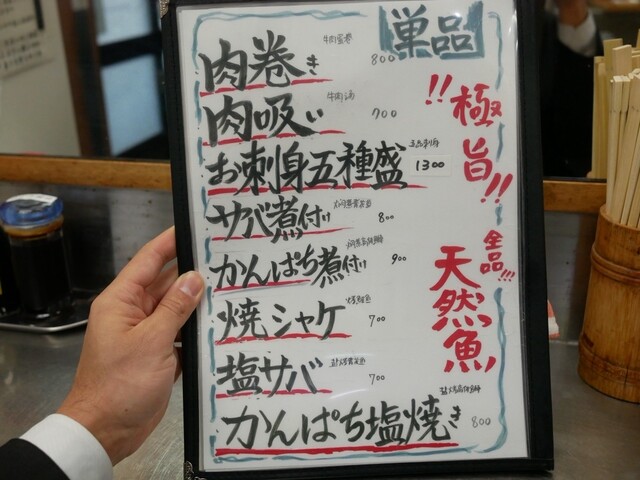 単品
肉巻き 牛肉蛋卷 800
肉吸い 牛肉汤 700
お刺身五種盛 1300
サバ煮付け 800
かんぱち煮付け 900
焼シャケ 700
塩サバ 700
かんぱち塩焼き 800
!!極旨!!
全品!!!
天然魚